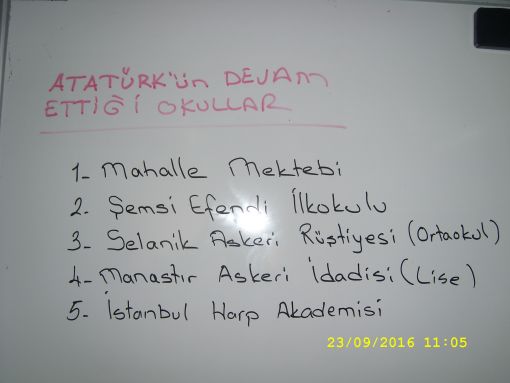 ATATÜRK'ün DEVAM
ETTİĞİ OKULLAR
1- Mahalle Mektebi
2. Şemsi Efendi İlkokulu
3- Selanik Askeri Rüştiyesi (Ortaokul)
4- Manastır Askeri İdadisi (Lise)
5- İstanbul Harp Akademisi
23/09/2016 11:05